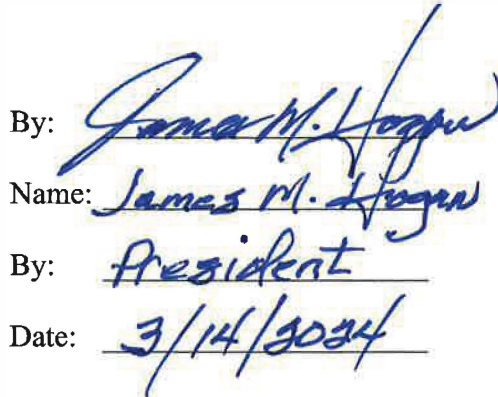 By: James M. Hogan
Name: James M. Hogan
By: President
Date: 3/14/2024